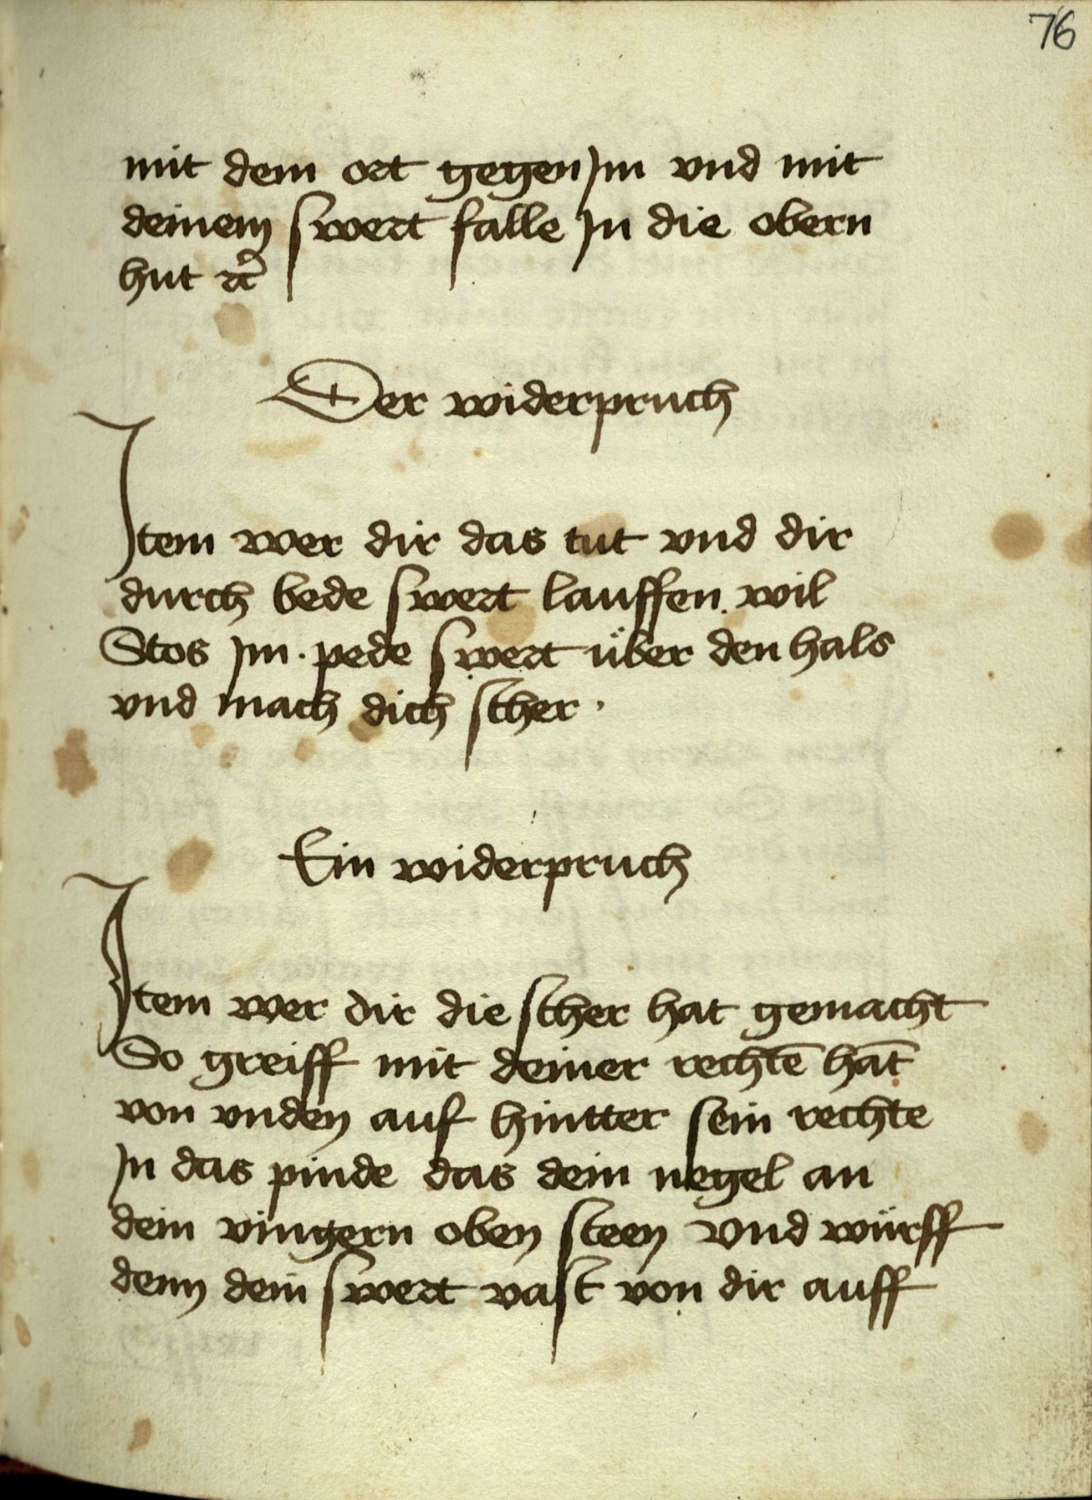 76
mit dem ort gegen Jm vnd mit
deinem swert falle Jn die obern
hut ꝛcᷓ
Der widerpruch
Jtem wer dir das tut vnd dir
durch bede swert lauffen wil
Stos Jm · pede swert über den hals
vnd mach dich scher ·
Ein widerpruch
Jtem wer dir die scher hat gemacht
So greiff mit deiner rechtē hāt
von vnden auf hintter sein rechte
Jn das pinde das dein negel an
dein vingern oben steen vnd würff
denn dein swert vast von dir auff